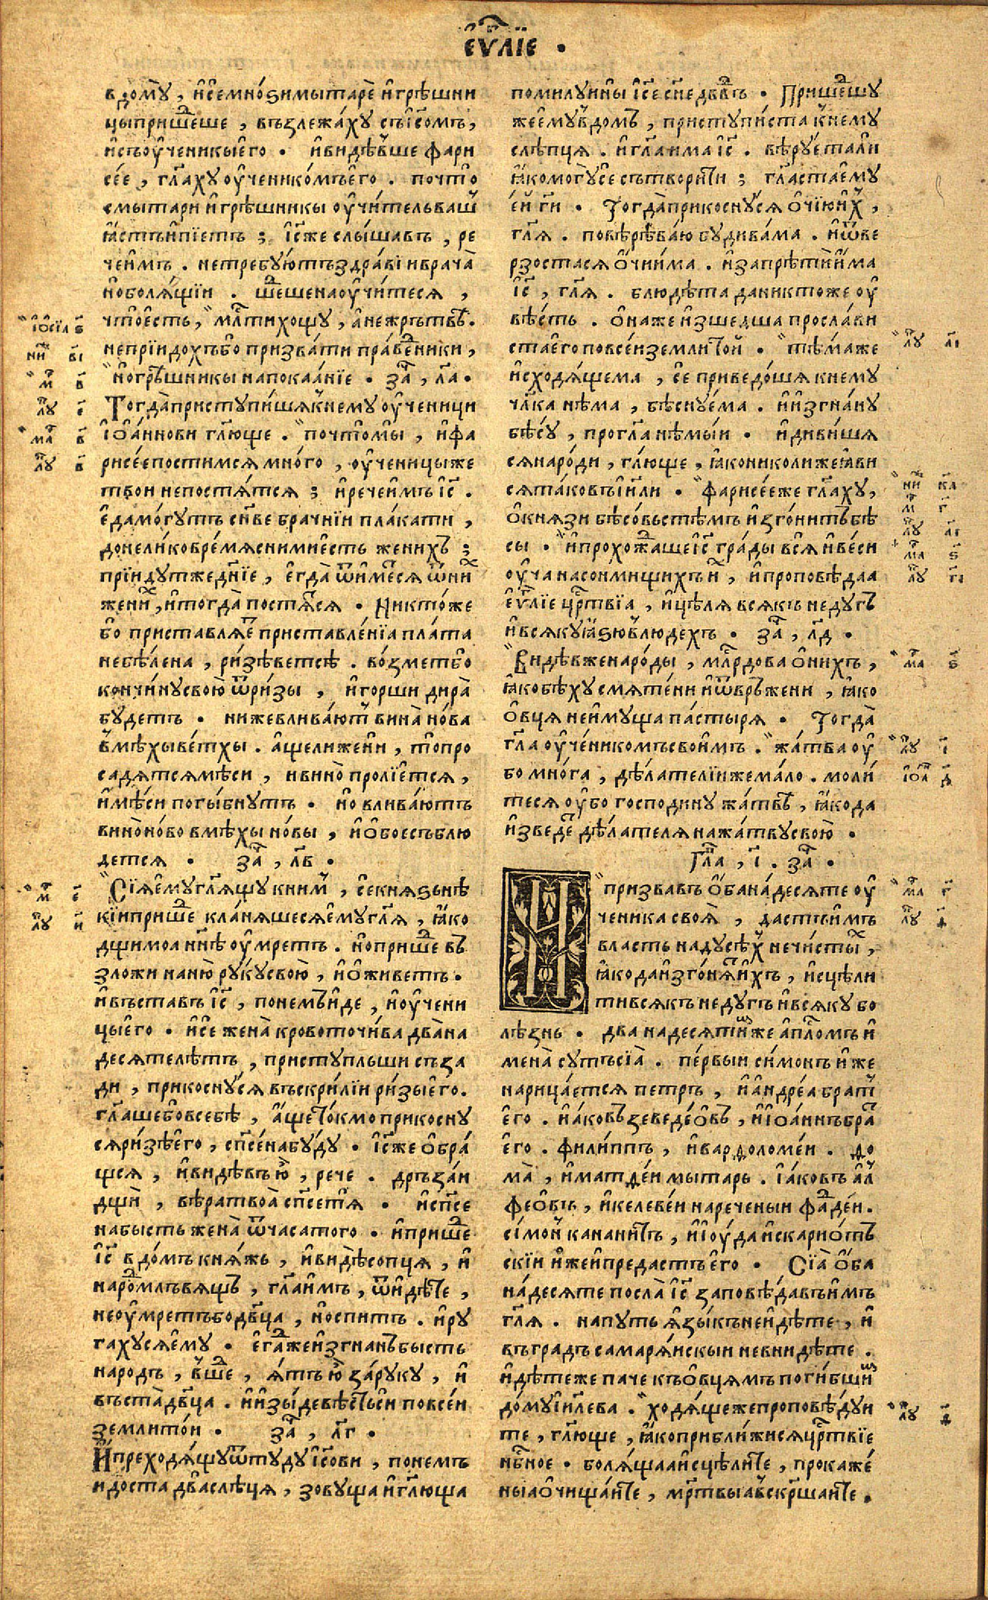 єѵ҃лїе .
в дому̀ , и҆сѐ мно́ѕи мытарѐ и҆ грѣ́шни
цы прише́дше , възлежа́ху съ і҆с҃омъ ,
и҆ съ оу҆ченикы̀ его̀ . и҆ ви́дѣвше фари
се́е , гл҃аху оу҆ченико́мъ его̀ . почто̀
с мытарѝ и҆ грѣ́шникы оу҆чи́тель ва́ш
ꙗ҆́стъ и҆ пїе́тъ ; і҆с҃ же слы́шавъ , ре
чѐ и҆̀мъ . не тре́буютъ здра́вїи врача̀
но боля́щїи . ше́дше на оу҆чи́теся ,
что̀ е҆́сть , мл҃ти хощу̀ , а҆ не же́ртвѣ .
не прїидо́хъ бо призва́ти пра́ведники ,
но грѣ́шникы на покаа́нїе . за҃ , л҃а .
Тогда̀ приступи́шя к нему̀ оу҆ченици
і҆оа́ннови гл҃юще . почто̀ мы̀ , и҆ фа
рисе́е пости́мся мно́го , оу҆ченицы же
твоѝ не постя́тся ; и҆ речѐ и҆̀мъ і҆с҃ .
е҆да̀ мо́гутъ сн҃ве бра́чнїи пла́кати ,
донели́ко вре́мя с ни́ми е҆́сть жени́хъ ;
прїи́дут же дн҃їе , е҆гда̀ ѿи́мется ѿ ни́х
жени́х , и҆ тогда̀ постя́тся . Никто́же
бо приставля́ет приставле́нїа пла́та
небѣ́лена , ри́зѣ ветсѣ̀ . во́змет бо
кончи́ну свою̀ ѿ ри́зы , и҆ го́рши дира̀
бу́детъ . ниже влива́ют вина̀ но́ва
в мѣ́хы ве́тхы . а҆́ще ли же нѝ , то̀ про
садя́тся мѣ́си , и вино̀ пролїе́тся ,
и҆ мѣ́си погы́бнутъ . но влива́ютъ
вино̀ но́во в мѣ́хы но́вы , и҆ о҆бое съблю
де́тся . за҃ , л҃в .
Сїя̀ е҆му̀ гл҃ящу к ни́м , сѐ кня́ѕь нѣ́
кїи прише́д кла́няшеся е҆му̀ гл҃я , ꙗ҆́ко
дщѝ моа̀ нн҃ѣ оу҆́мретъ . но прише́д въ
зложѝ на ню̀ ру́ку свою̀ , и҆ о҆живе́тъ .
и҆ въста́въ і҆с҃ , по не́мъ и҆́де , и҆ оу҆чени
цы̀ его̀ . и҆ сѐ жена̀ кровоточи́ва два̀на
десяте лѣ́тъ , присту́пльши съза
дѝ , прикосну́ся въскри́лїи ри́зы е҆го̀ .
гл҃аше бо в себѣ̀ , а҆́ще то́кмо прикосну
ся ри́зѣ е҆го̀ , сп҃се́на бу́ду . і҆с҃ же о҆бра́
щся , и҆ ви́дѣвъ ю҆̀ , рече . дръза́и
дщѝ , вѣ́ра твоа̀ сп҃се́ тя . и҆ сп҃се
на бы́сть жена̀ ѿ часа того . и҆ прише́д
і҆с҃ в до́мъ кня́жь , и҆ ви́дѣ сопця̀ , и҆
наро́д мл҃ъвящъ , гл҃а и҆̀мъ , ѿидѣ́те ,
не оу҆́мретъ бо дв҃ца , но спи́тъ . и҆ ру
га́хуся е҆му̀ . е҆гда́ же и҆згна́нъ бы́сть
наро́дъ , вше́д , я҆́тъ ю҆̀ за́ руку , и҆
въста̀ дв҃ца . и҆ и҆зы́де вѣ́сть сѝ по все́и
землѝ то́и . за҃ , л҃г .
И҆ преходя́щу ѿту́ду і҆с҃ови , по не́мъ
идо́ста два̀ слѣ́ця , зову́ща и҆ гл҃юща
помилу́и ны̀ і҆с҃е сн҃е дв҃двъ . Прише́дшу
же е҆му̀ в до́мъ , приступи́ста к нему̀
слѣ́пця . и҆ гл҃а и҆ма і҆с҃ . вѣ́руета ли
ꙗ҆́ко могу̀ сѐ сътвори́ти ; гл҃аста е҆му̀
е҆́и гѝ . Тогда̀ прикосну́ся о҆чїю̀ и҆́х ,
гл҃я . по вѣ́рѣ ва́ю бу́ди ва́ма . и҆ ѿве
рзо́стася о҆́чи и҆́ма . и҆ запрѣтѝ и҆́ма
і҆с҃ , гл҃я . блюдѣ́та да никто́же оу҆
вѣ́сть . о҆на́ же и҆зше́дша просла́ви
ста е҆го̀ по все́и землѝ то́й . тѣ́ма же
и҆сходя́щема , сѐ приведо́шя к нему̀
чл҃ка нѣ́ма , бѣсну́ема . и҆ и҆згна́ну
бѣ́су , прогл҃а нѣмы́и . и҆ диви́шя
ся наро́ди , гл҃юще , ꙗ҆́ко николи́же ꙗ҆ви
ся та́ко въ і҆и҃ли . фарисе́е же гл҃аху ,
о҆ кня́зи бѣсо́вьстѣмъ и҆зго́нитъ бѣ́
сы . и҆ прохожда́ше і҆с҃ гра́ды вся̀ и҆ ве́си
оу҆ча̀ на со́нмищихъ и҆́х , и҆ проповѣ́даа
е҆ѵ҃лїе цр҃твїа , и҆ цѣля̀ всякъ неду́гъ
и҆ вся́ку ꙗ҆́ѕю в лю́дехъ . за҃ , л҃д .
Ви́дѣв же наро́ды , мл҃рдова о҆ ни́хъ ,
ꙗ҆́ко бѣ́ху смяте́ни и҆ ѿвръ́жени , ꙗ҆́ко
о҆вця̀ не и҆му́ща па́стыря . Тогда̀
гл҃а оу҆чеʼнико́мъ свои́мъ . жа́тва оу҆
бо мно́га , дѣ́лателїи же ма́ло . моли́
теся оу҆бо господи́ну жа́твѣ , ꙗ҆́ко да
и҆зведе́т дѣ́лателя на жа́тву свою̀ .
Гл҃а , і҃ . за҃ .
И призва́въ о҆банадесяте оу҆
ченика своя̀ , да́стъ и҆̀мъ
вла́сть на ду́сѣх нечи́сты́х ,
ꙗ҆́ко да и҆зго́нят и҆́хъ , и҆сцѣли
ти вся́къ неду́гъ и҆ вся́ку бо
лѣ́знь . двана́десяти́х же ап҃ломъ и҆
мена̀ су́ть сїа̀ . пе́рвыи си́монъ и҆же
нарица́ется пе́тръ , и҆ андре́а бра́т
е҆го . и҆а́ковъ зеведе́овъ , и҆ і҆оа́ннъ бра́т
е҆го . фили́ппъ , и҆ вардоломе́и . до
ма̀ , и҆ матде́и мыта́рь . і҆а́ковъ ал
фео́въ , и҆ келеве́и нарече́ныи фадде́и .
си́мон канани́тъ , и҆ і҆у́да и҆скарио́тъ
скїи и҆́же и҆ преда́стъ е҆го . Сїа̀ о҆ба
на́десяте посла̀ і҆с҃ заповѣ́давъ и҆̀мъ
гл҃я . на пу́ть я҆зы́къ не и҆дѣ́те , и҆
въ гра́дъ самаря́нскыи не вни́дѣте .
и҆дѣ́те же па́че къ о҆вця́мъ поги́бши́х
до́му і҆и҃лева . ходя́ще же проповѣ́дуи
те , гл҃юще , ꙗ҆́ко прибли́жися цр҃твїе
нб҃ное . боля́щаа и҆сцѣли́те , прокаже́
ныа о҆чища́ите , мр҃твыа въскр҃ша́ите .